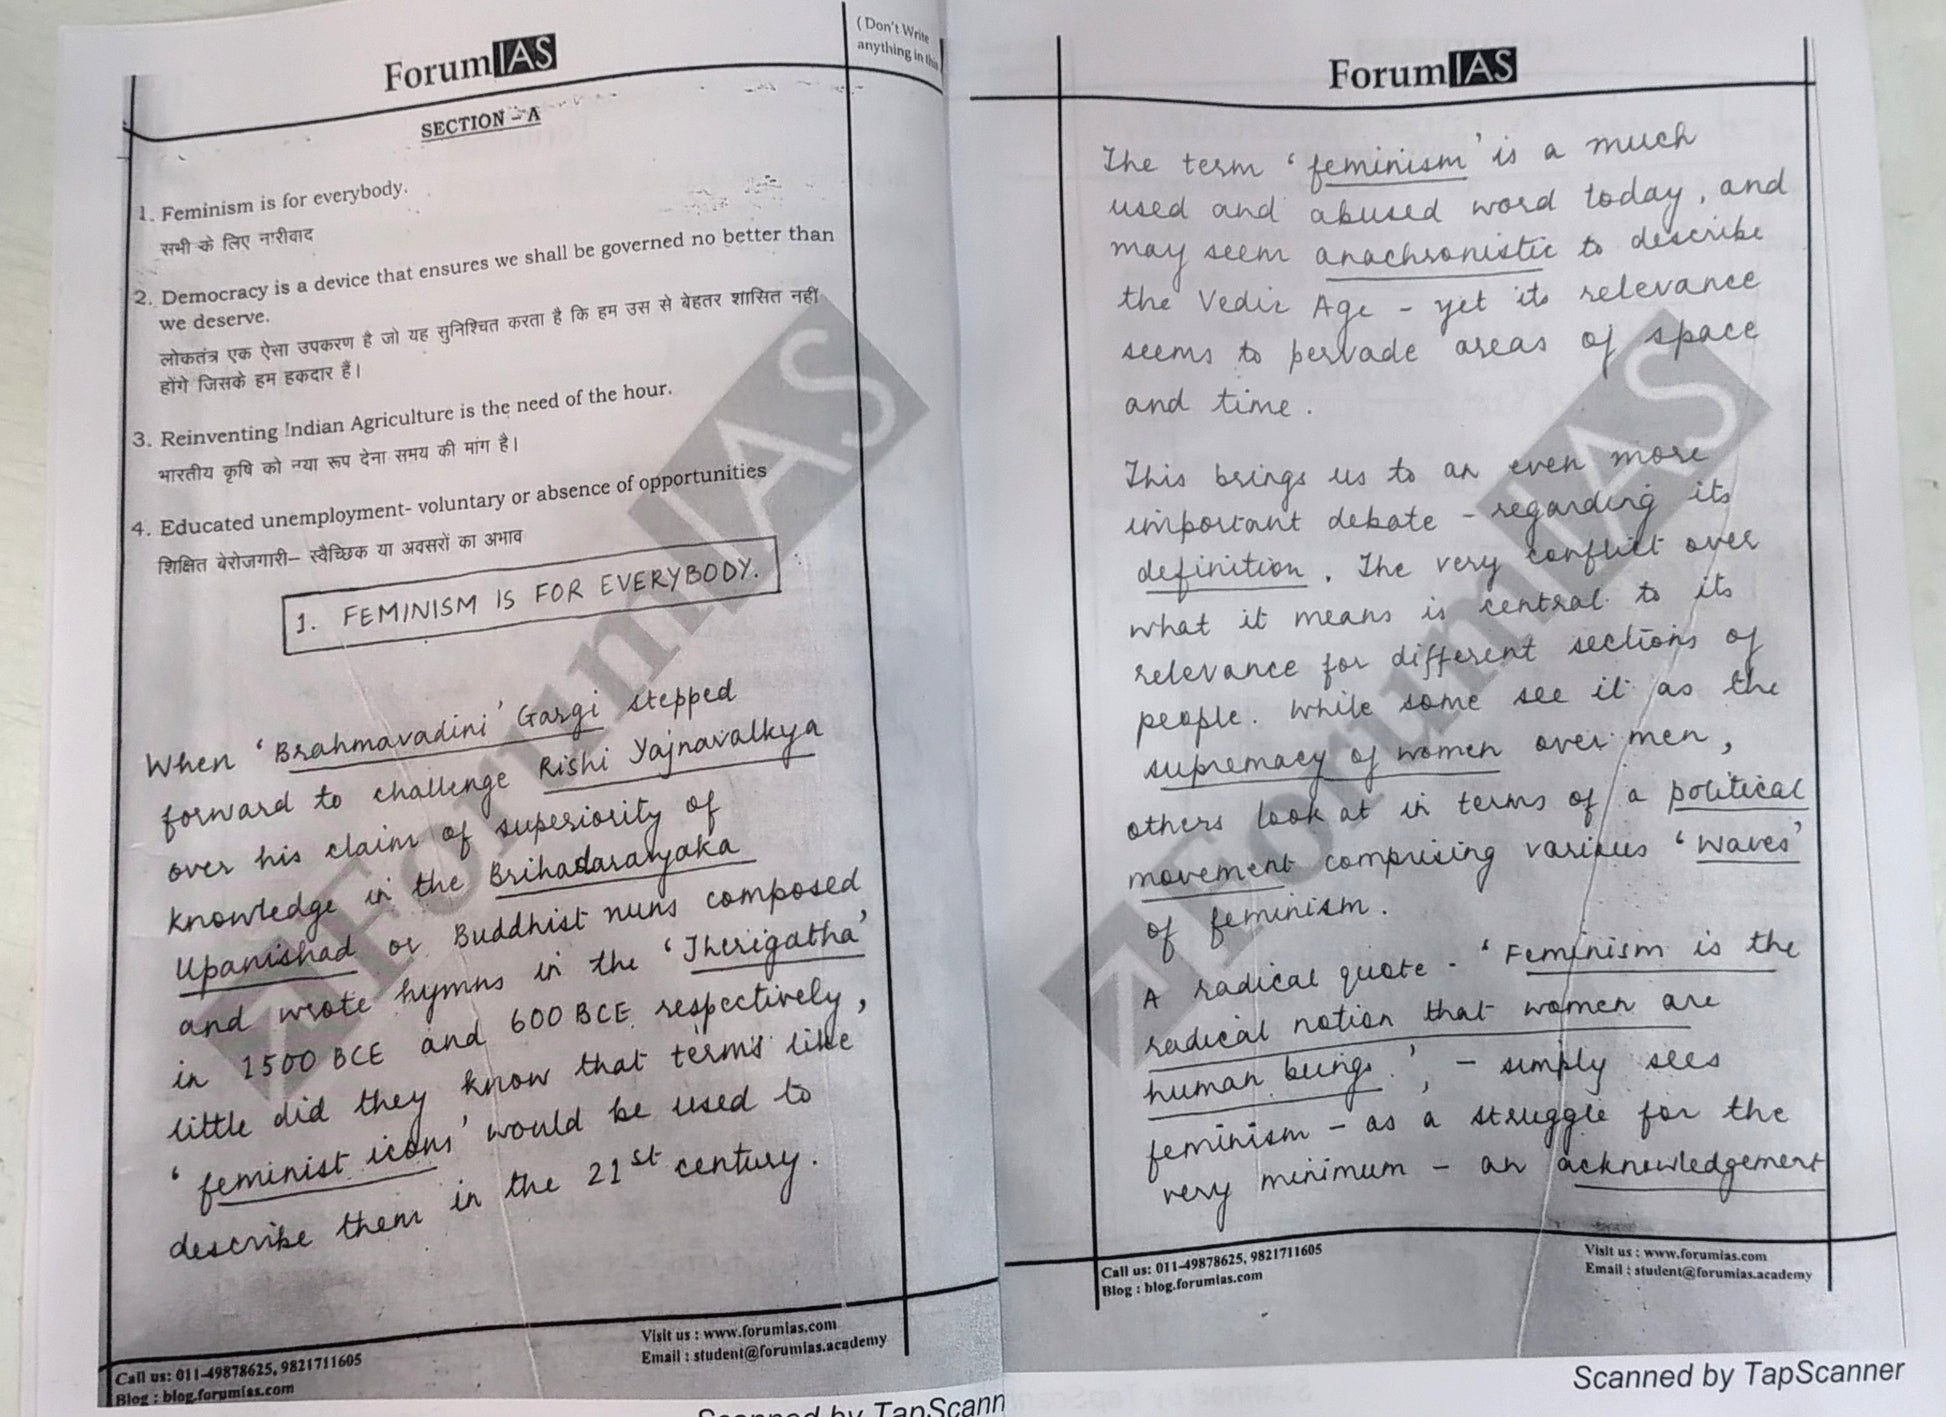 ForumIAS
(Don't Write
anything in this
SECTION – A
1. Feminism is for everybody.
सभी के लिए नारीवाद
2. Democracy is a device that ensures we shall be governed no better than
we deserve.
लोकतंत्र एक ऐसा उपकरण है जो यह सुनिश्चित करता है कि हम उस से बेहतर शासित नहीं
होंगे जिसके हम हकदार हैं।
3. Reinventing Indian Agriculture is the need of the hour.
भारतीय कृषि को नया रूप देना समय की मांग है।
4. Educated unemployment- voluntary or absence of opportunities
शिक्षित बेरोजगारी– स्वैच्छिक या अवसरों का अभाव
1. FEMINISM IS FOR EVERYBODY.
When 'Brahmavadini' Gargi stepped
forward to challenge Rishi Yajnavalkya
over his claim of superiority of
knowledge in the Brihadaranyaka
Upanishad or Buddhist nuns composed
and wrote hymns in the 'Therigatha'
in 1500 BCE and 600 BCE respectively,
little did they know that terms like
'feminist icons' would be used to
describe them in the 21st century.
Call us: 011-49878625, 9821711605
Blog : blog.forumias.com
Visit us : www.forumias.com
Email : student@forumias.academy
Scanned by TapScann
ForumIAS
The term 'feminism' is a much
used and abused word today, and
may seem anachronistic to describe
the Vedic Age – yet its relevance
seems to pervade areas of space
and time.
This brings us to an even more
important debate – regarding its
definition. The very conflict over
what it means is central to its
relevance for different sections of
people. While some see it as the
supremacy of women over men,
others look at in terms of a political
movement comprising various 'waves'
of feminism.
A radical quote - 'Feminism is the
radical notion that women are
human beings.', – simply sees
feminism – as a struggle for the
very minimum – an acknowledgement
Call us: 011-49878625, 9821711605
Blog : blog.forumias.com
Visit us : www.forumias.com
Email : student@forumias.academy
Scanned by TapScanner